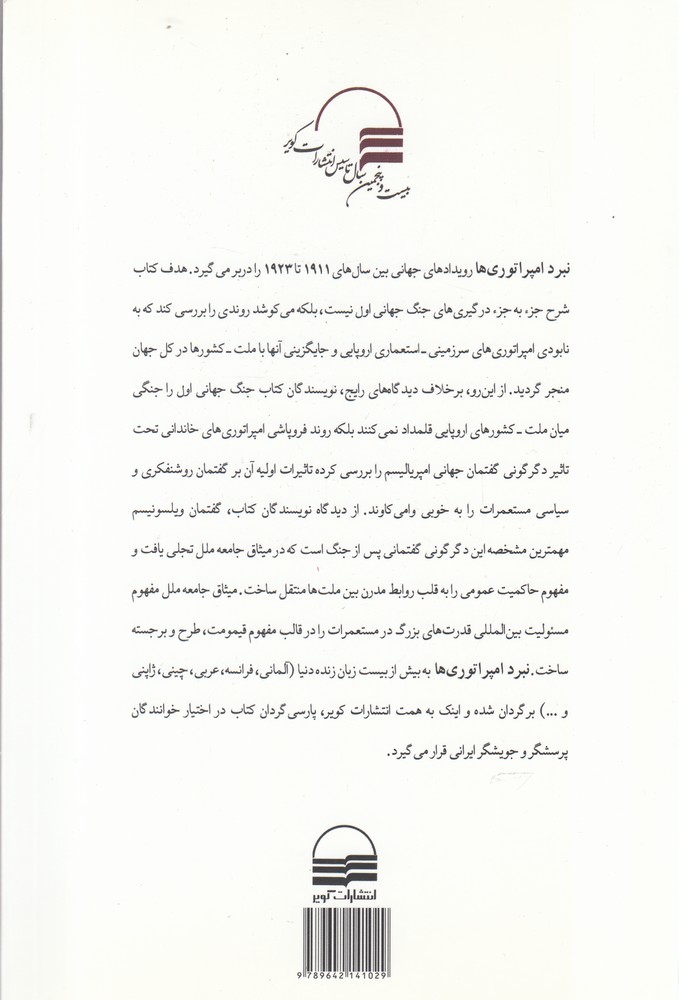 بیست و پنجمین سال تاسیس انتشارات کویر
نبرد امپراتوری‌ها رویدادهای جهانی بین سال‌های ۱۹۱۱ تا ۱۹۲۳ را دربر می‌گیرد. هدف کتاب
شرح جزء به جزء درگیری‌های جنگ جهانی اول نیست، بلکه می‌کوشد روندی را بررسی کند که به
نابودی امپراتوری‌های سرزمینی ـ استعماری اروپایی و جایگزینی آنها با ملت ـ کشورها در کل جهان
منجر گردید. از این‌رو، برخلاف دیدگاه‌های رایج، نویسندگان کتاب جنگ جهانی اول را جنگی
میان ملت ـ کشورهای اروپایی قلمداد نمی‌کنند بلکه روند فروپاشی امپراتوری‌های خاندانی تحت
تاثیر دگرگونی گفتمان جهانی امپریالیسم را بررسی کرده تاثیرات اولیه آن بر گفتمان روشنفکری و
سیاسی مستعمرات را به خوبی وامی‌کاوند. از دیدگاه نویسندگان کتاب، گفتمان ویلسونیسم
مهمترین مشخصه این دگرگونی گفتمانی پس از جنگ است که در میثاق جامعه ملل تجلی یافت و
مفهوم حاکمیت عمومی را به قلب روابط مدرن بین ملت‌ها منتقل ساخت. میثاق جامعه ملل مفهوم
مسئولیت بین‌المللی قدرت‌های بزرگ در مستعمرات را در قالب مفهوم قیمومت، طرح و برجسته
ساخت. نبرد امپراتوری‌ها به بیش از بیست زبان زنده دنیا (آلمانی، فرانسه، عربی، چینی، ژاپنی
و ...) برگردان شده و اینک به همت انتشارات کویر، پارسی‌گردان کتاب در اختیار خوانندگان
پرسشگر و جویشگر ایرانی قرار می‌گیرد.
انتشارات کویر
9 789642 141029